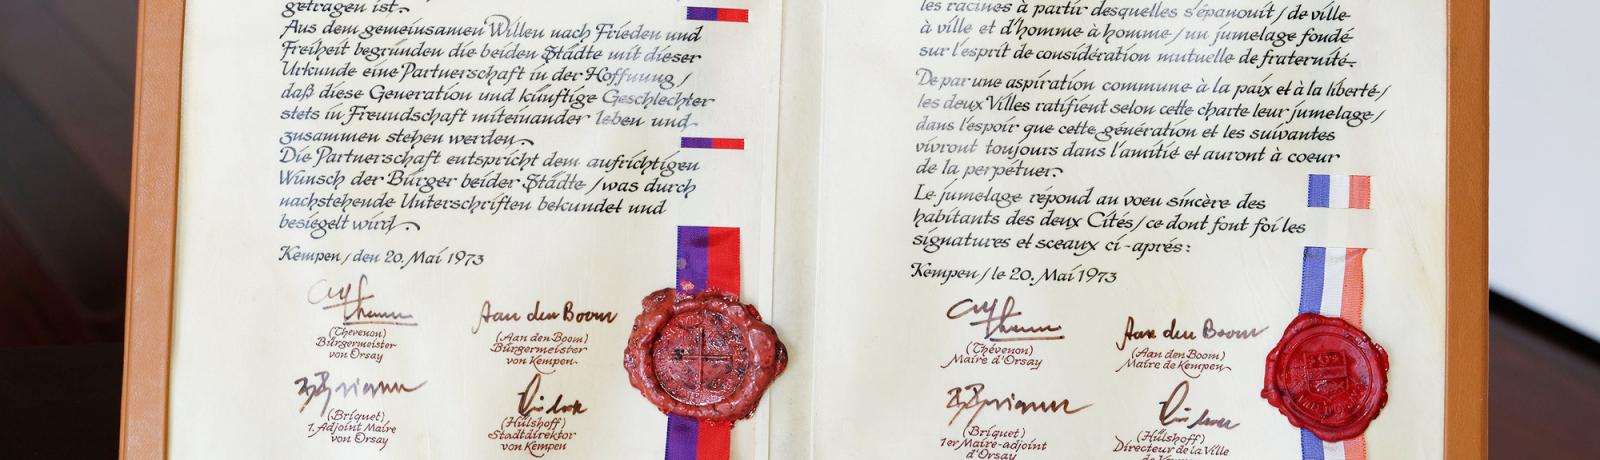 getragen ist.
Aus dem gemeinsamen Willen nach Frieden und
Freiheit begründen die beiden Städte mit dieser
Urkunde eine Partnerschaft in der Hoffnung /
daß diese Generation und künftige Geschlechter
stets in Freundschaft miteinander leben und
zusammen stehen werden.
Die Partnerschaft entspricht dem aufrichtigen
Wunsch der Bürger beider Städte / was durch
nachstehende Unterschriften bekundet und
besiegelt wird.
Kempen / den 20. Mai 1973
Aan den Boom
(Thévenon)
Bürgermeister
von Orsay
(Aan den Boom)
Bürgermeister
von Kempen
(Briquet)
1. Adjoint Maire
von Orsay
(Hülshoff)
Stadtdirektor
von Kempen
les racines à partir desquelles s'épanouit / de ville
à ville et d'homme à homme / un jumelage fondé
sur l'esprit de considération mutuelle de fraternité.
De par une aspiration commune à la paix et à la liberté /
les deux Villes ratifient selon cette charte leur jumelage /
dans l'espoir que cette génération et les suivantes
vivront toujours dans l'amitié et auront à coeur
de la perpétuer.
Le jumelage répond au voeu sincère des
habitants des deux Cités / ce dont font foi les
signatures et sceaux ci-après:
Kempen / le 20. Mai 1973
Aan den Boom
(Thévenon)
Maire d'Orsay
(Aan den Boom)
Maire de Kempen
(Briquet)
1er Maire-adjoint
d'Orsay
(Hülshoff)
Directeur de la Ville
de Kempen